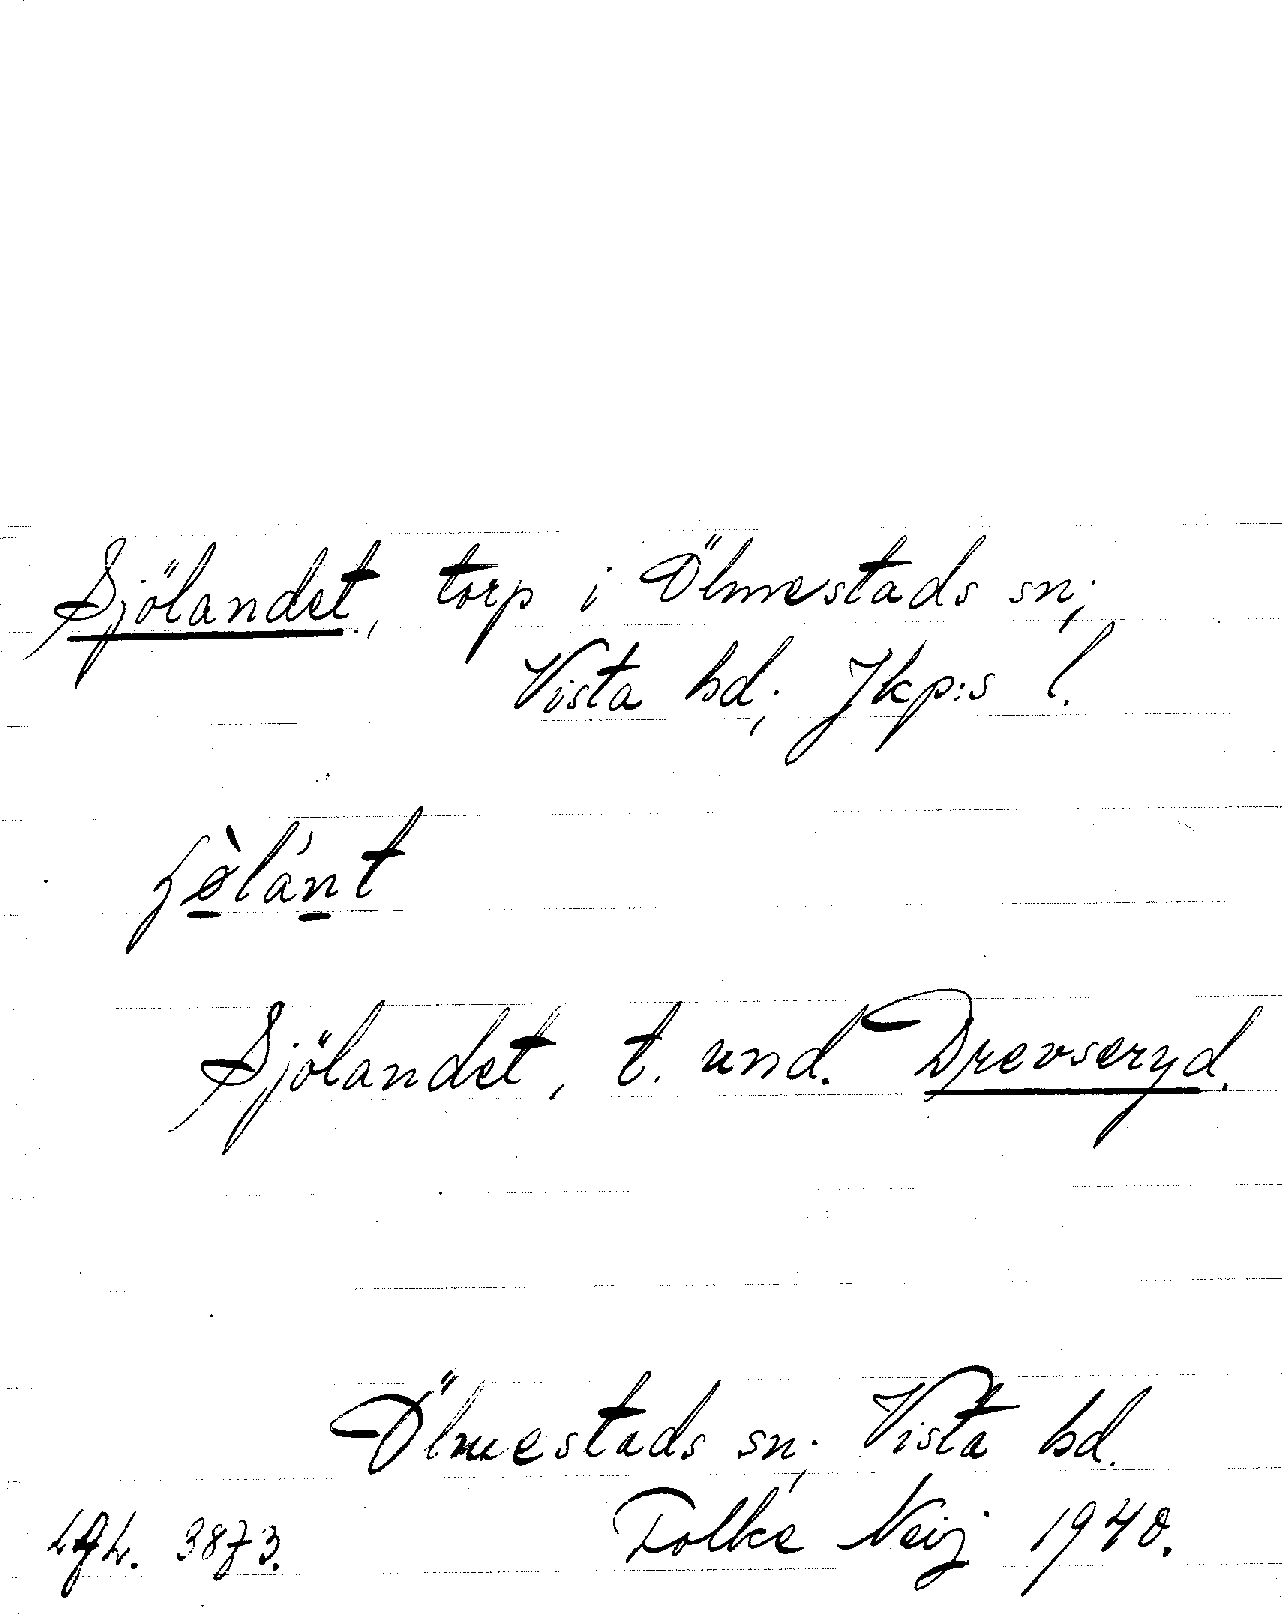 Sjölandet, torp i Ölmestads sn;
Vista hd; Jkp:s l.
Sjölandet, t. und. Drevseryd.
Ölmestads sn; Vista hd.
Folke Neij 1940.
3873.